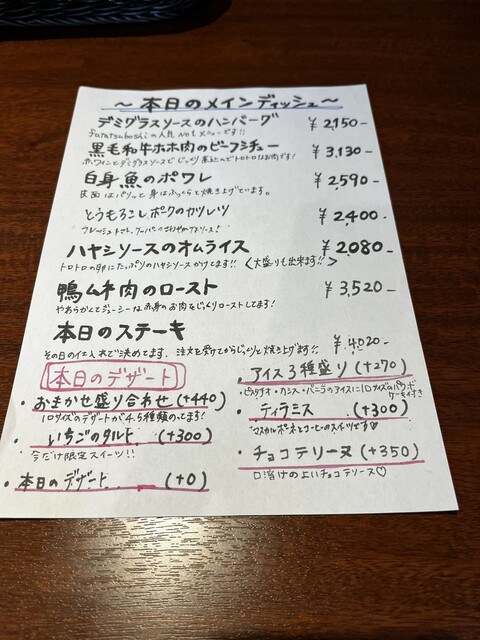 ～本日のメインディッシュ～
デミグラスソースのハンバーグ ¥2,150-
futatsuboshiの人気No1メニューです!!
黒毛和牛ホホ肉のビーフシチュー ¥3,130-
赤ワインとデミグラスソースでじっくり煮込んでトロトロなお肉です!
白身魚のポワレ ¥2,590-
皮面はパリッと身はふっくらと焼き上げています。
とうもろこしポークのカツレツ ¥2,400-
フレッシュトマト、ケーパーのさわやかなソース!
ハヤシソースのオムライス ¥2,080-
トロトロの卵にたっぷりのハヤシソースかけてます!! <大盛りも出来ます!!>
鴨ムネ肉のロースト ¥3,520-
やわらかくてジューシーな赤身のお肉をじっくりローストしてます!
本日のステーキ ¥4,020-
その日の仕入れで決めてます、注文を受けてからじっくりと焼き上げます!!
本日のデザート
・おまかせ盛り合わせ(+440)
1口サイズのデザートが4、5種類のってます!
・いちごのタルト(+300)
今だけ限定スイーツ!!
・本日のデザート (+0)
・アイス3種盛り(+270)
ピスタチオ・カシス・バニラのアイスに1口サイズのパウンドケーキ付き
・ティラミス (+300)
マスカルポーネとコーヒーのスイーツです♡
・チョコテリーヌ(+350)
口溶けの良いチョコテリーヌ♡